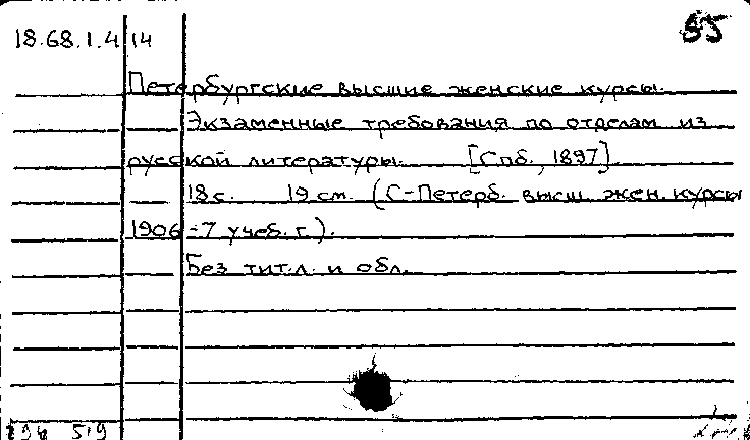 18.68.1.4 14 55
Петербургские высшие женские курсы.
Экзаменные требования по отделам из
русской литературы. [Спб., 1897]
18 с. 19 см. (С-Петерб. высш. жен. курсы
1906-7 учеб. г.).
Без тит.л. и обл.
519